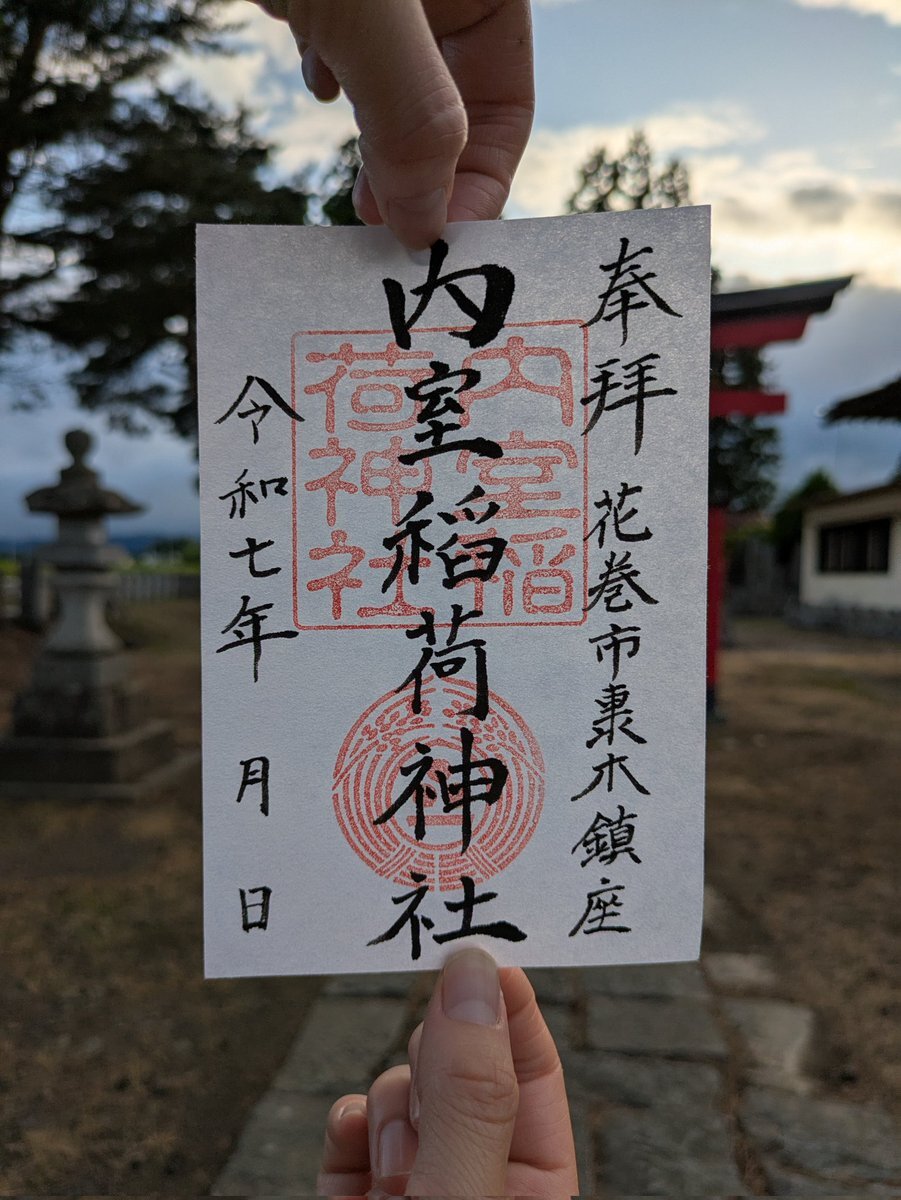 奉拝 花巻市木鎮座
内室稲荷神社
内室稲
荷神社
令和七年 月 日